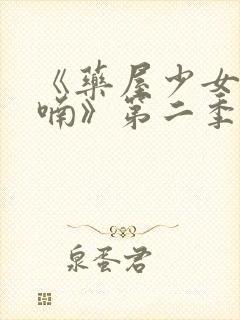 《藥屋少女
喃》第二季
泉蛋君